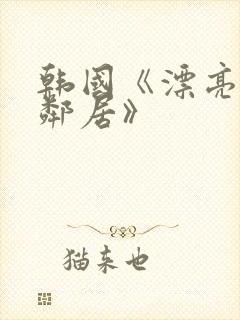 韩国《漂亮
邻居》
猫来也